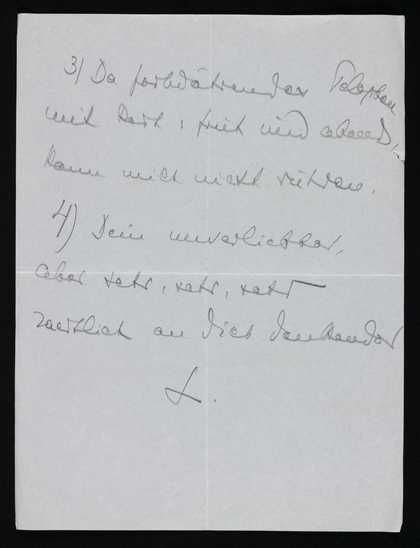 3) Da fortwährendes Telephon
mit dort, früh und abend,
kann mich nicht rühren.
4) Dein unverliebter,
aber sehr, sehr, sehr
zärtlich an Dich denkender
L.